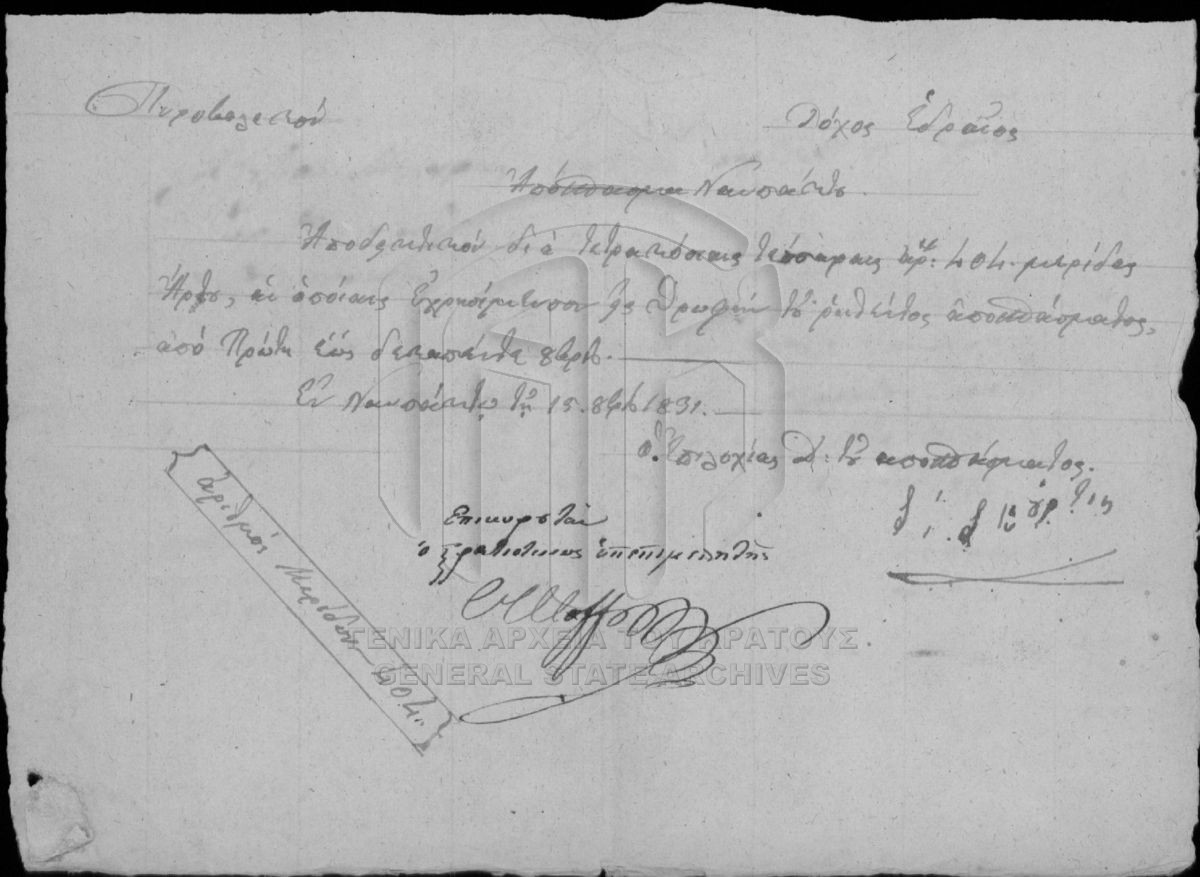 Πυροβολικόν
Λόχος Ἑδραῖος
Ἀπόσπασμα Ναυπάκτου.
Ἀποδεικτικὸν διὰ τετρακόσιαις τέσσαραις ἀρ: 404. μερίδας
Ἄρτου, αἱ ὁποίαις ἐχρησίμευσαν εἰς θροφὴν τοῦ ῥηθέντος ἀποσπάσματος,
ἀπὸ Πρώτη ἕως δεκαπέντε 8βρίου.
Ἐν Ναυπάκτῳ τῇ 15. 8βρίου 1831.
ὁ Ἐπιλοχίας Δ: τοῦ ἀποσπάσματος.
Επικυρούται
ὁ Στρατιοτικος ὑπεπιμελητής
ἀριθμός Μερίδων 404.
ΓΕΝΙΚΑ ΑΡΧΕΙΑ ΤΟΥ ΚΡΑΤΟΥΣ
GENERAL STATE ARCHIVES